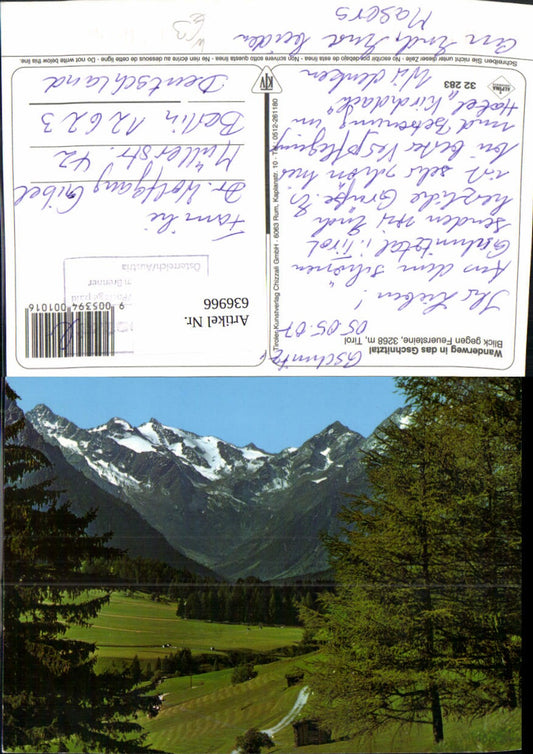 Wanderweg in das Gschnitztal
Blick gegen Feuersteine, 3268 m, Tirol
Gschnitz
05.05.07
Ihr Lieben!
Aus dem schönen
Gschnitztal i. Tirol
senden wir Euch
herzliche Grüße. Es
ist sehr schön hier
bei bester Verpflegung
und Betreuung im
Hotel „Kirchdach“
Wir denken
an Euch, Eure beiden
Masers
32 283
ALPINA
Tiroler Kunstverlag Chizzali GmbH · 6063 Rum, Kaplanstr. 10 · Tel. 0512-261180
KIV
Schreiben Sie nicht unter diese Zeile · No escribir por debajo de esta línea · Niente scrivere sotto questa linea · Ne rien écrire au dessous de cette ligne · Do not write below this line
Österreich/Austria
Artikel Nr.
636966
9 005394 001016
Familie
Dr. Wolfgang Gibel
Müllerstr. 42
Berlin 12623
Deutschland